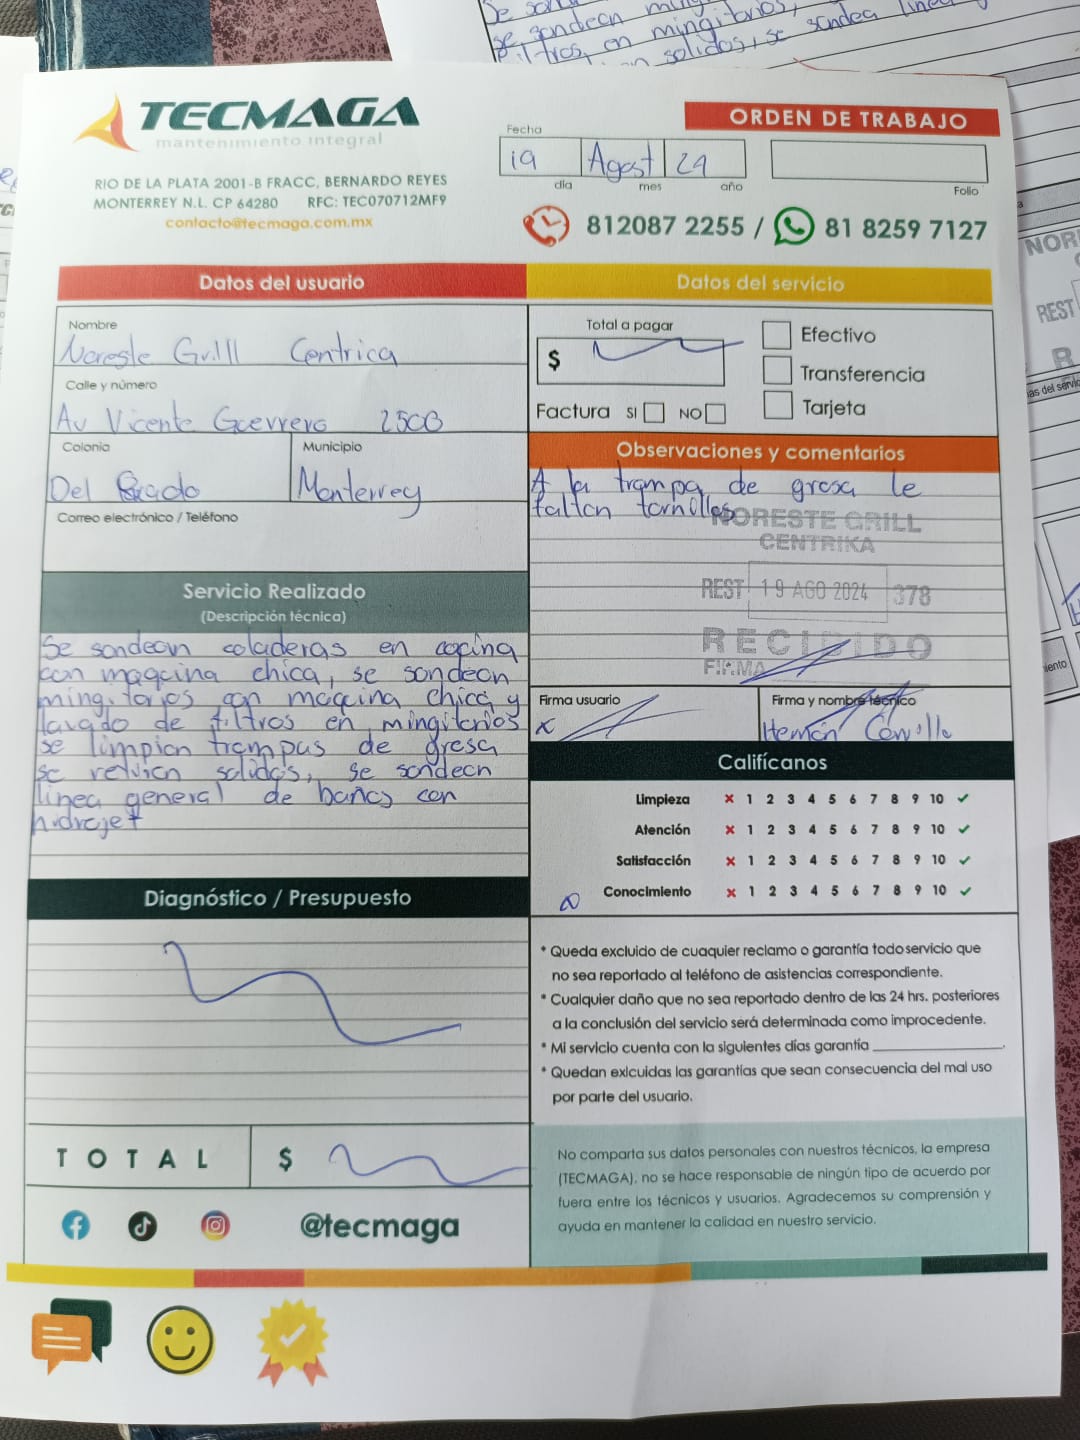 Se sondean
se sondean mingitorios,
filtros en mingitorios, se sondea linea
solidos, se
TECMAGA
mantenimiento integral
RIO DE LA PLATA 2001-B FRACC, BERNARDO REYES
MONTERREY N.L. CP 64280 RFC: TEC070712MF9
contacto@tecmaga.com.mx
ORDEN DE TRABAJO
Fecha
19 Agost 24
día mes año
Folio
812087 2255 / 81 8259 7127
Datos del usuario
Nombre
Noreste Grill Centrica
Calle y número
Av Vicente Guerrero 2500
Colonia
Municipio
Del Prado
Monterrey
Correo electrónico / Teléfono
Servicio Realizado
(Descripción técnica)
Se sondean coladeras en cocina
con maqcina chica, se sondean
mingitorios con maqcina chica y
lavado de filtros en mingitorios
se limpian trampas de gresa
se retvian solidos, se sondean
linea general de baños con
hidrojet
Diagnóstico / Presupuesto
TOTAL $
@tecmaga
Datos del servicio
Total a pagar
$
Efectivo
Transferencia
Tarjeta
Factura SI NO
Observaciones y comentarios
A la trampa de gresa le
faltan tornillos
NORESTE GRILL
CENTRIKA
REST 19 AGO 2024 378
RECIBIDO
FIRMA
Firma usuario
Firma y nombre técnico
x
Hernán Carrillo
Califícanos
Limpieza ✗ 1 2 3 4 5 6 7 8 9 10 ✓
Atención ✗ 1 2 3 4 5 6 7 8 9 10 ✓
Satisfacción ✗ 1 2 3 4 5 6 7 8 9 10 ✓
Conocimiento ✗ 1 2 3 4 5 6 7 8 9 10 ✓
* Queda excluido de cuaquier reclamo o garantía todo servicio que
no sea reportado al teléfono de asistencias correspondiente.
* Cualquier daño que no sea reportado dentro de las 24 hrs. posteriores
a la conclusión del servicio será determinada como improcedente.
* Mi servicio cuenta con la siguientes días garantía ____________.
* Quedan exlcuidas las garantías que sean consecuencia del mal uso
por parte del usuario.
No comparta sus datos personales con nuestros técnicos, la empresa
(TECMAGA), no se hace responsable de ningún tipo de acuerdo por
fuera entre los técnicos y usuarios. Agradecemos su comprensión y
ayuda en mantener la calidad en nuestro servicio.
NOR
REST
R